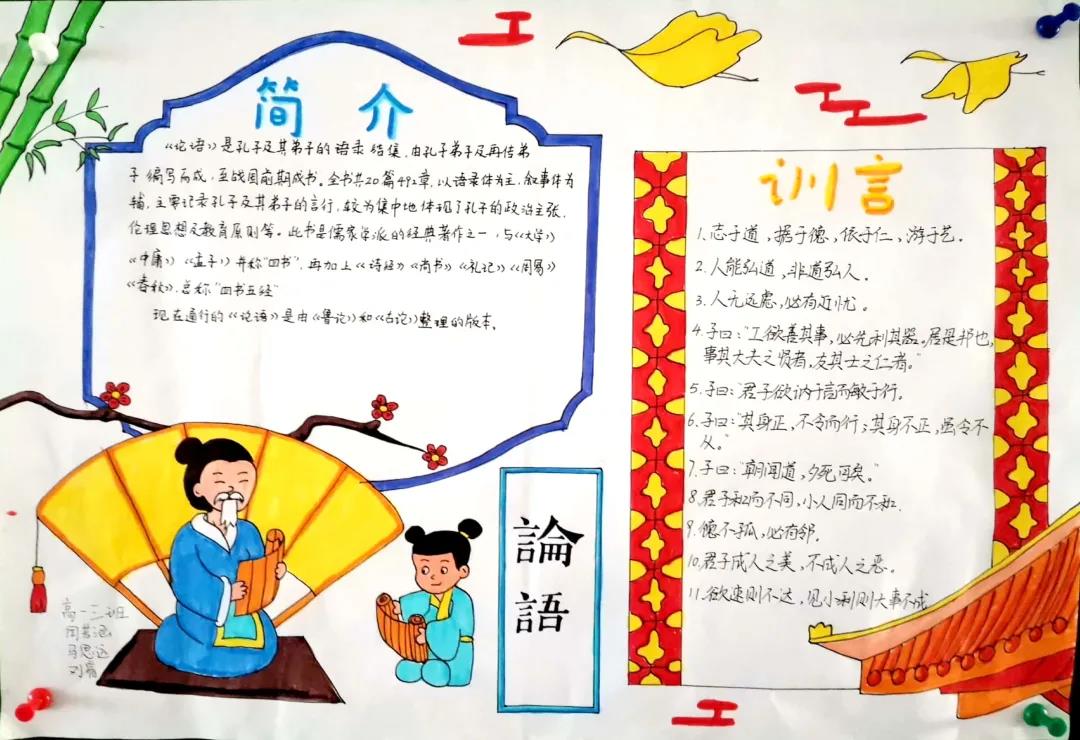 简介
《论语》是孔子及其弟子的语录结集,由孔子弟子及再传弟
子编写而成,至战国前期成书。全书共20篇492章,以语录体为主,叙事体为
辅,主要记录孔子及其弟子的言行,较为集中地体现了孔子的政治主张,
伦理思想及教育原则等。此书是儒家学派的经典著作之一,与《大学》
《中庸》《孟子》并称"四书",再加上《诗经》《尚书》《礼记》《周易》
《春秋》,总称"四书五经"
现在通行的《论语》是由《鲁论》和《古论》整理的版本。
訓言
1.志于道,据于德,依于仁,游于艺。
2.人能弘道,非道弘人。
3.人无远虑,必有近忧。
4.子曰:"工欲善其事,必先利其器。居是邦也,
事其大夫之贤者,友其士之仁者。"
5.子曰:"君子欲讷于言而敏于行。
6.子曰:"其身正,不令而行;其身不正,虽令不
从。"
7.子曰:"朝闻道,夕死可矣。"
8.君子和而不同,小人同而不和.
9.德不孤,必有邻.
10.君子成人之美,不成人之恶。
11.欲速则不达,见小利则大事不成
論語
高一三班
马思远